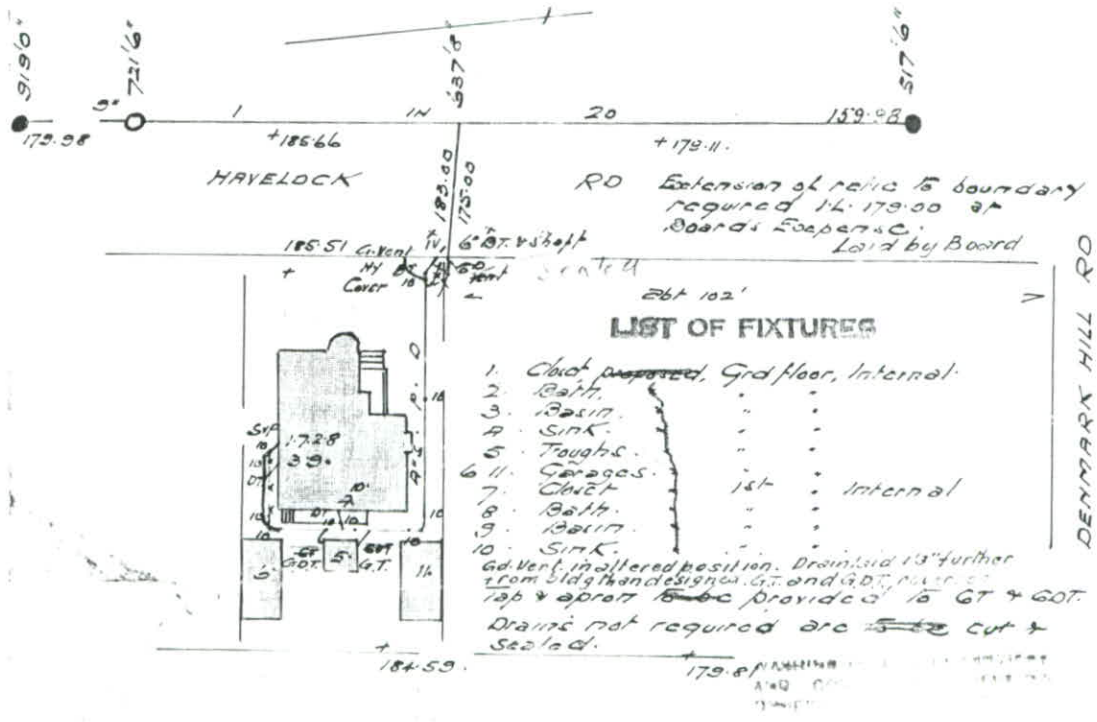 919'0"
721'6"
637'8"
517'6"
9"
1 IN 20
159.98
179.98
+185.66
+179.11.
HAVELOCK RD
183.00
175.00
Extension of reinc to boundary
required I.L. 179.00 at
Boards Expense.
Laid by Board
185.51
G.Vent
IV
6" BT. & Shaft
HY
BT
Cover
10
Vent
Abt 102'
DENMARK HILL RD
LIST OF FIXTURES
1. Closet proposed, Grd floor, Internal.
2. Bath. " "
3. Basin. " "
4. Sink. " "
5. Troughs. " "
6 11. Garages. " "
7. Closet 1st " Internal
8. Bath. " "
9. Basin. " "
10. Sink. " "
Gd. Vent in altered position. Drain laid 1'3" further
from bldg than designed. G.T. and G.D.T.
Tap & apron to be provided to GT & GDT.
Drains not required are to be cut &
sealed.
SVP
1.7.2.8
3 9.
10
DT
10'
4
DT
10
G.DT.
5.
G.T.
11
184.59.
179.81